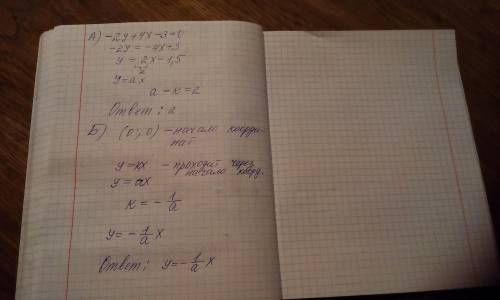 А) -2y+4x-3=0
-2y = -4x+3
y = 2x-1,5
к
y=ax
a = к = 2
Ответ: 2
Б) (0; 0) - начало коорди-
нат
y=кx - проходит через
начало коорд.
y=ax
к = - 1/a
y= - 1/a x
Ответ: y= - 1/a x